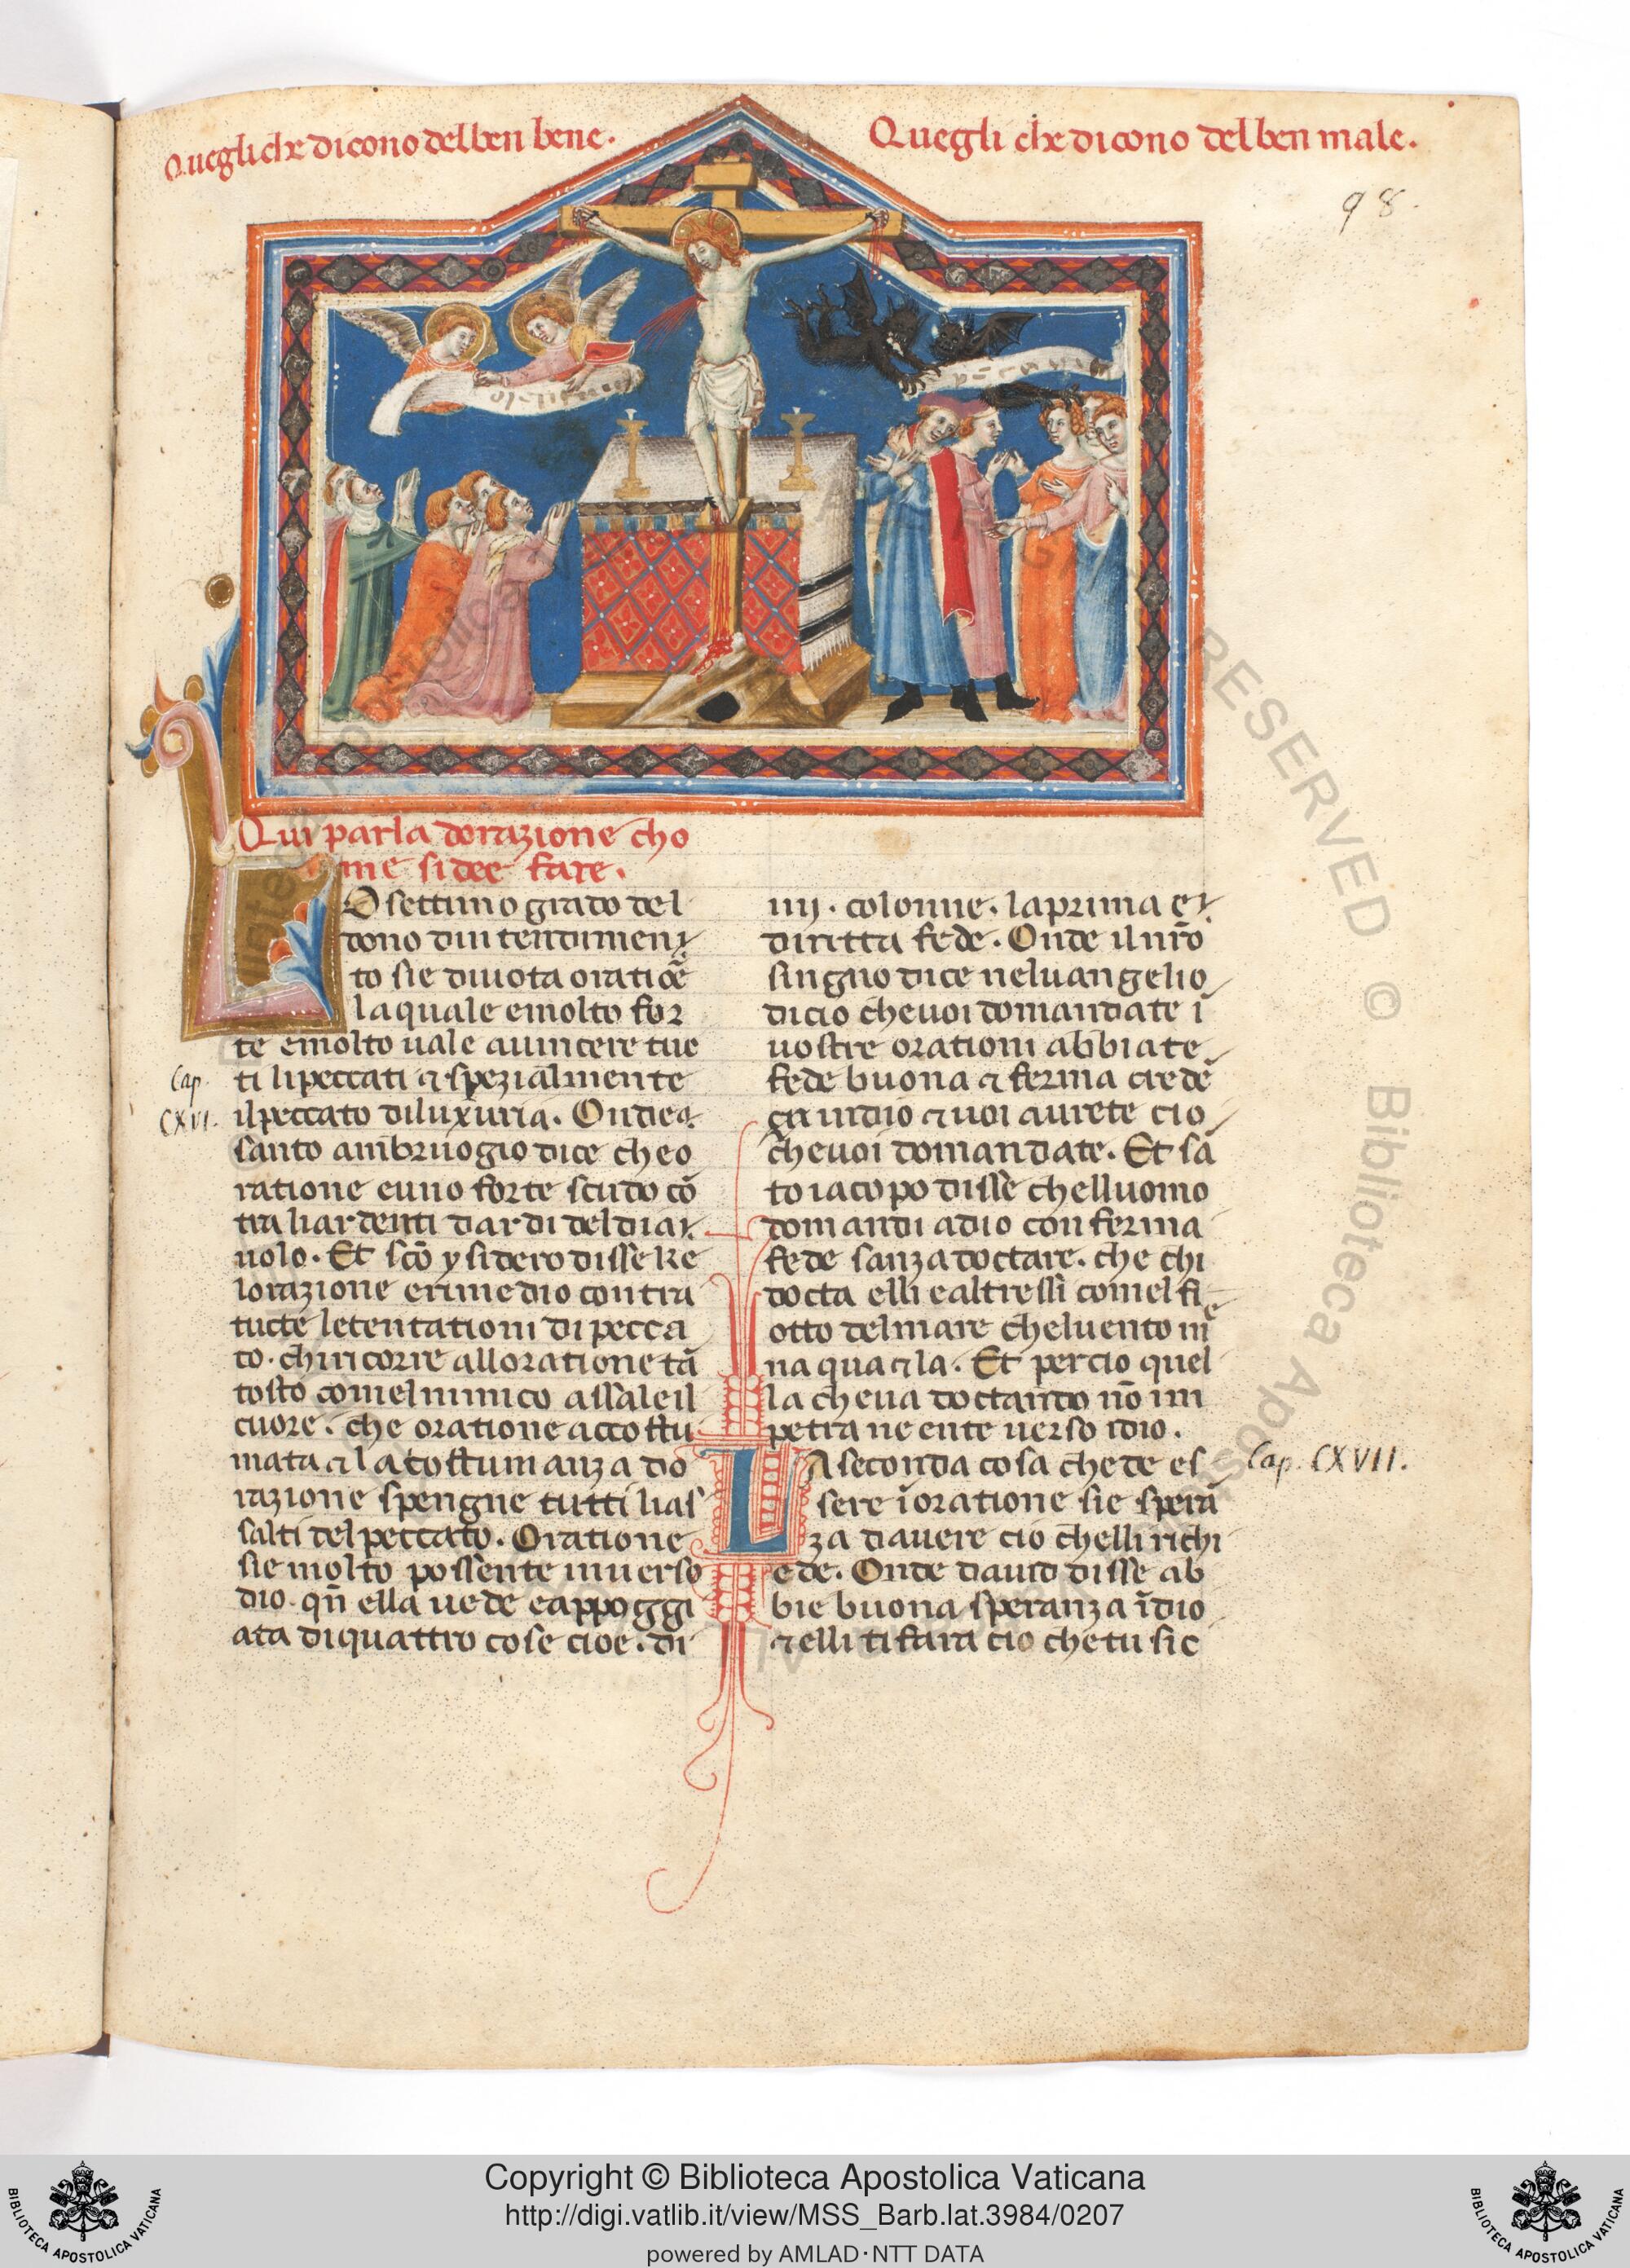 Quegli che dicono del ben bene.
Quegli che dicono del ben male.
98.
Qui parla dorazione cho
me si dee fare.
LO settimo grado del
dono dintendimen
to sie diuota oratiōe
la quale emolto for
te emolto uale auincere tuc
ti lipeccati ⁊ spezialmente
ilpeccato diluxuria. Ondeo
santo ambruogio dice cheo
ratione euno forte scudo cō
tra liardenti dardi deldia
uolo. Et scō ysidero disse ke
lorazione erimedio contra
tucte letentationi di pecca
to. chiricorre alloratione tā
tosto comelnimico assaleil
cuore. che oratione accostu
mata ⁊ lacostumanza do
razione spengne tutti lias
salti delpeccato. Oratione
sie molto possente inuerso
dio. qn̄ ella uede eappoggi
ata diquattro cose cioe. di
Cap.
CXVI.
iiij. colonne. laprima e
diritta fede. Onde ilnr̄o
singno dice neluangelio
dicio cheuoi domandate ī
uostre orationi abbiate
fede buona ⁊ ferma crede
ça indio ⁊ uoi aurete cio
cheuoi domandate. Et sā
to iacopo disse chelluomo
domandi adio con ferma
fede sanza doctare. che chi
docta elli ealtressi comel fi
otto delmare cheluento me
na qua ⁊ la. Et percio quel
la cheua doctando nō im
petra neente uerso idio.
LA seconda cosa chede es
sere īoratione sie sperā
za dauere cio chelli richi
ede. Onde dauid disse ab
bie buona speranza īdio
⁊ elli ti fara cio chetu sie
Cap. CXVII.
Copyright © Biblioteca Apostolica Vaticana
http://digi.vatlib.it/view/MSS_Barb.lat.3984/0207
powered by AMLAD·NTT DATA
BIBLIOTECA APOSTOLICA VATICANA
BIBLIOTECA APOSTOLICA VATICANA